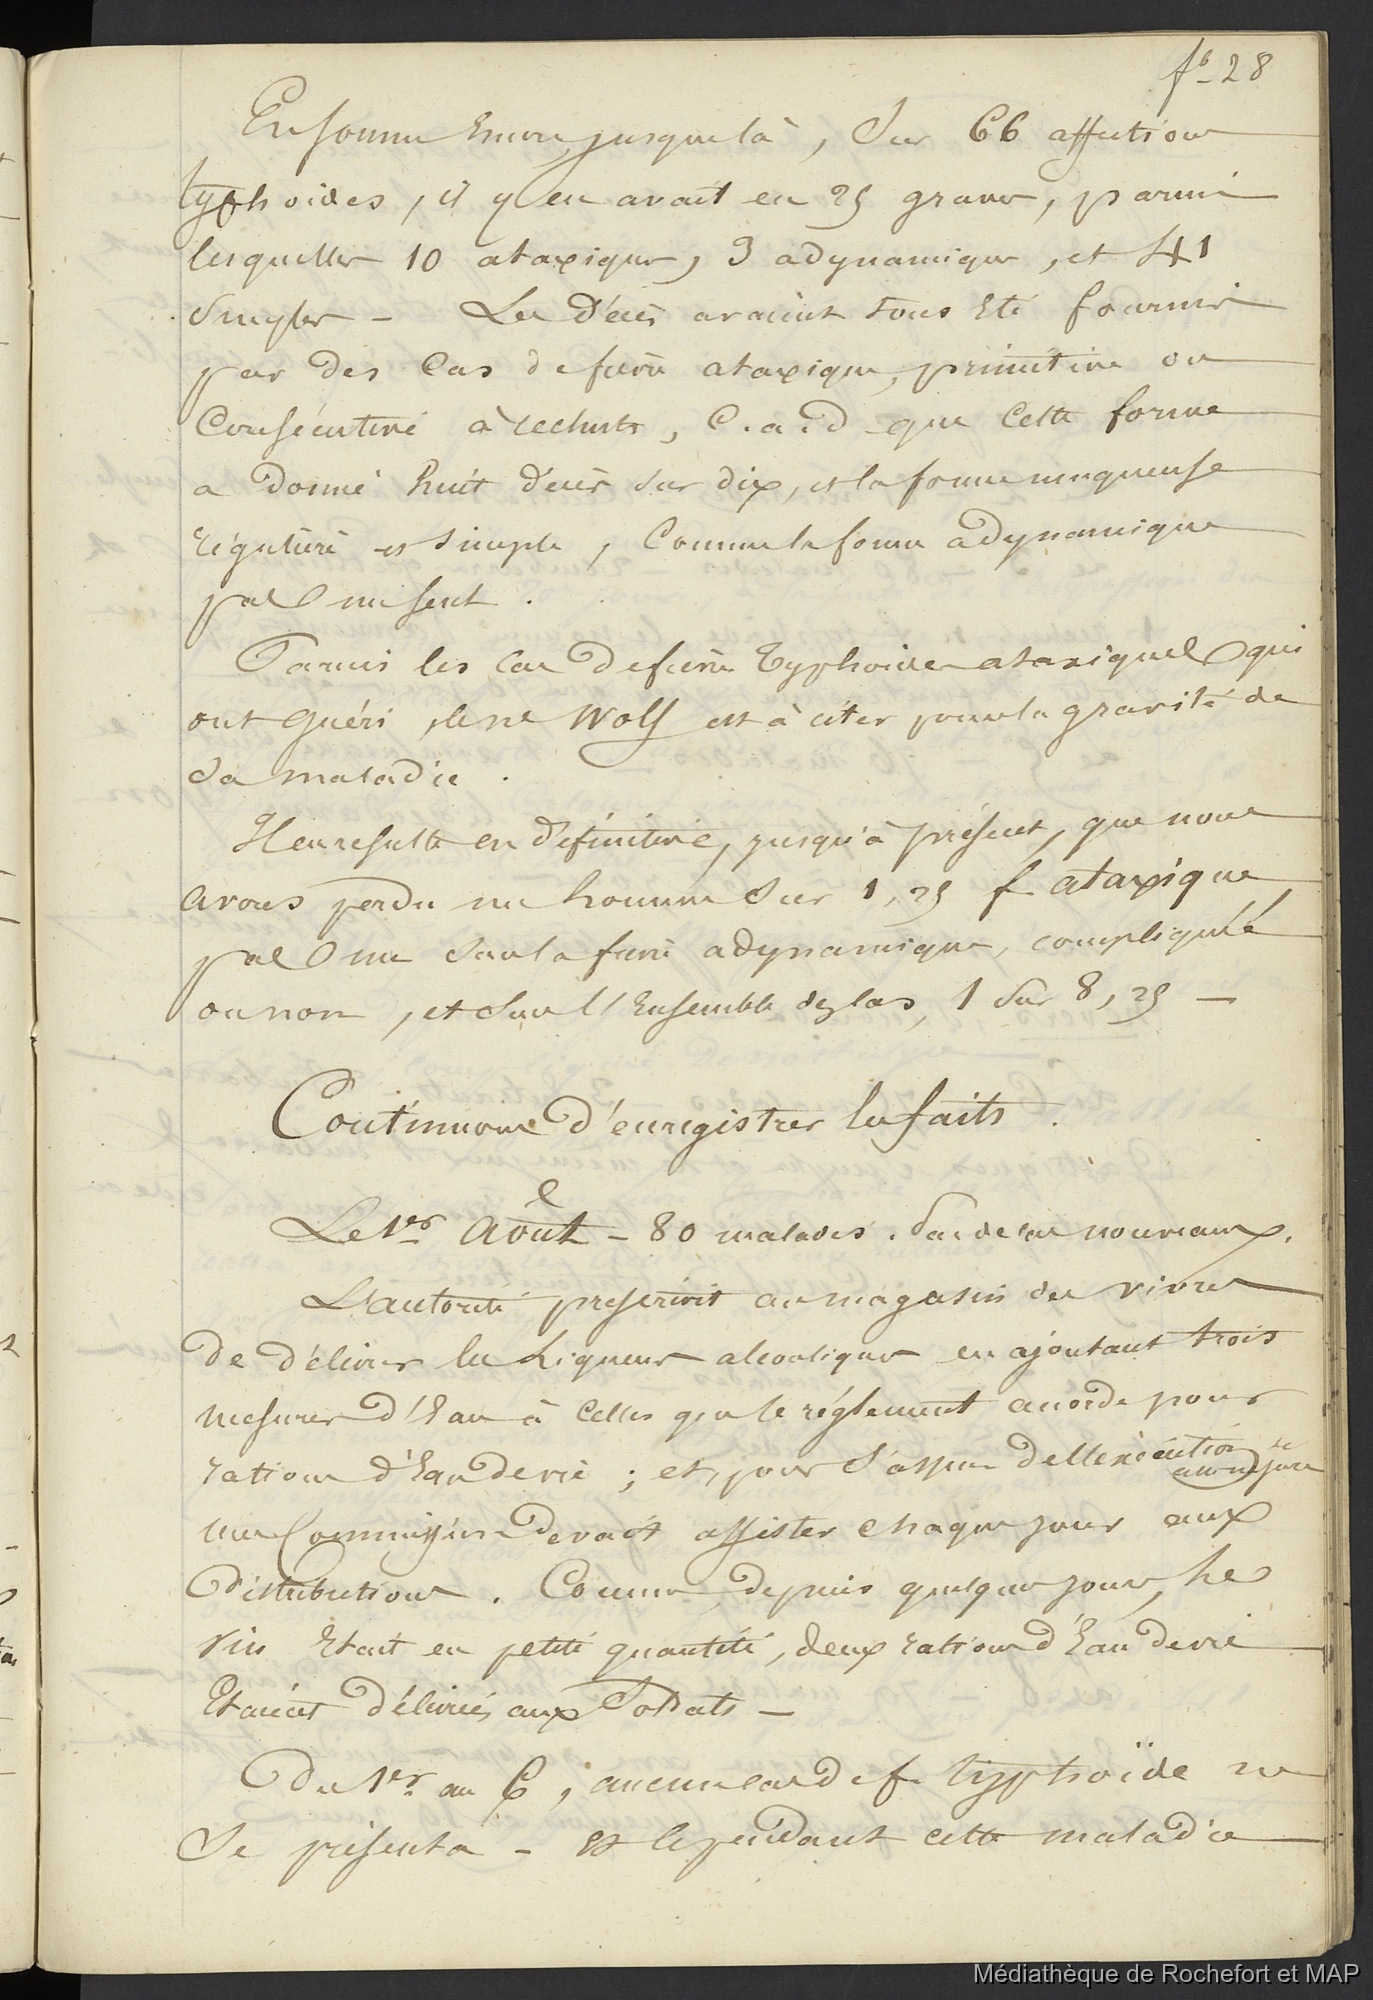 fo 28
En somme encore, jusque là, Sur 66 affections
typhoïdes, il y en avait eu 25 graves, parmi
lesquelles 10 ataxiques, 3 adynamiques, et 41
simples – Les décès avaient tous été fournis
par des cas de fièvre ataxique, primitive ou
Consécutive à rechute, C.a.d que cette forme
a donné huit décès sur dix, et la forme muqueuse
régulière et simple, Comme la forme adynamique
pas un seul.
Parmi les cas de fièvre typhoïde ataxiques qui
ont guéri, le né Wolf est à citer pour la gravité de
sa maladie.
Il en résulte en définitive, jusqu'à présent, que nous
avons perdu un homme sur 1,25 f. ataxique,
pas un sur la fièvre adynamique, compliquée
ou non, et sur l'Ensemble des cas, 1 sur 8,25 —
Continuons d'enregistrer les faits.
Le 1er Août – 80 malades. Pas de cas nouveaux.
L'autorité prescrivit au magasin des vivres
de délivrer les Liqueurs alcooliques en ajoutant trois
mesures d'Eau à celles que le réglement accorde pour
rations d'Eau de vie ; et, pour s'assurer de l'exécution de cette mesure
une Commission devait assister chaque jour aux
distributions. Comme, depuis quelques jours, le
vin était en petite quantité, deux rations d'Eau de vie
Etaient délivrées aux Soldats —
Du 1er au 6, aucun cas de f. typhoïde ne
se présenta – et cependant cette maladie
Médiathèque de Rochefort et MAP